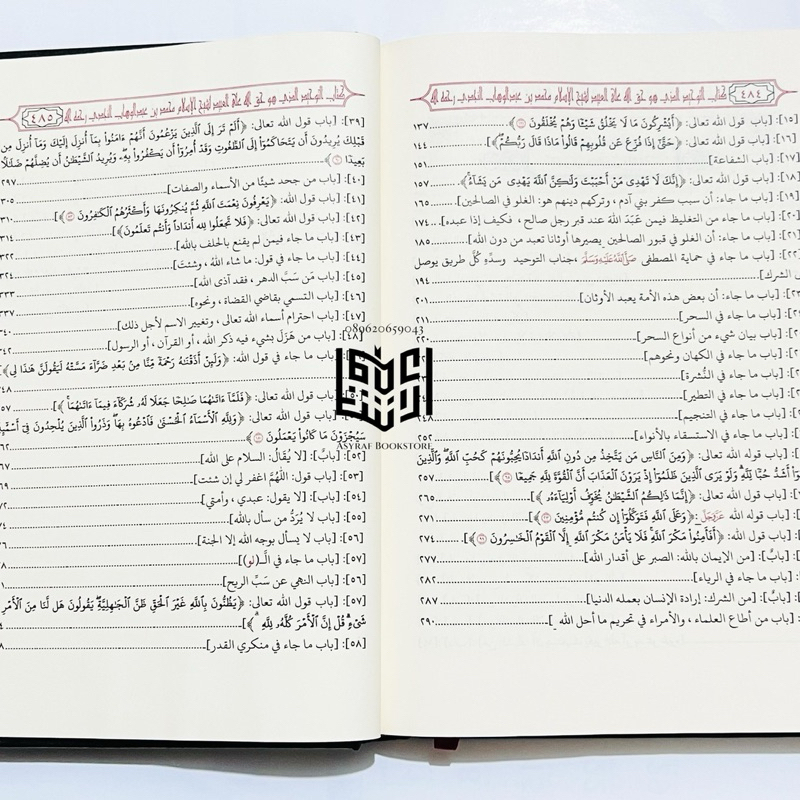 كتاب التوحيد الذي هو حق الله على العبيد لشيخ الإسلام محمد بن عبدالوهاب النجدي رحمه الله
٤٨٤
[١٥]: [باب قول الله تعالى: ﴿أَيُشْرِكُونَ مَا لَا يَخْلُقُ شَيْئًا وَهُمْ يُخْلَقُونَ﴾]. ١٣٧
[١٦]: [باب قول الله تعالى: ﴿حَتَّىٰ إِذَا فُزِّعَ عَن قُلُوبِهِمْ قَالُوا مَاذَا قَالَ رَبُّكُمْ﴾] ١٤٤
[١٧]: [باب الشفاعة] ١٥١
[١٨]: [باب قول الله تعالى: ﴿إِنَّكَ لَا تَهْدِى مَنْ أَحْبَبْتَ وَلَـٰكِنَّ ٱللَّهَ يَهْدِى مَن يَشَآءُ﴾]. ١٥٧
[١٩]: [باب ما جاء: أن سبب كفر بني آدم ، وتركهم دينهم هو: الغلو في الصالحين] ١٦٥
[٢٠]: [باب ما جاء من التغليظ فيمن عَبَدَ اللهَ عند قبر رجل صالح ، فكيف إذا عبده] ١٧٤
[٢١]: [باب ما جاء: أن الغلو في قبور الصالحين يصيرها أوثانا تعبد من دون الله] ١٨٥
[٢٢]: [باب ما جاء في حماية المصطفى ﷺ ،جناب التوحيد وسدِّه كُلَّ طريق يوصل
الشرك] ١٩٤
[باب ما جاء: أن بعض هذه الأمة يعبد الأوثان] ٢٠١
[باب ما جاء في السحر] ٢١١
[باب بيان شيء من أنواع السحر] ٢٢٠
[باب ما جاء في الكهان ونحوهم]
[باب ما جاء في النُّشرة]
[باب ما جاء في التطير]
[باب ما جاء في التنجيم] ٢٤٨
[باب ما جاء في الاستسقاء بالأنواء] ٢٥٢
[باب قوله الله تعالى: ﴿وَمِنَ ٱلنَّاسِ مَن يَتَّخِذُ مِن دُونِ ٱللَّهِ أَندَادًا يُحِبُّونَهُمْ كَحُبِّ ٱللَّهِ وَٱلَّذِينَ
أَشَدُّ حُبًّا لِّلَّهِ وَلَوْ يَرَى ٱلَّذِينَ ظَلَمُوٓا إِذْ يَرَوْنَ ٱلْعَذَابَ أَنَّ ٱلْقُوَّةَ لِلَّهِ جَمِيعًا﴾] ٢٥٧
[باب قول الله تعالى: ﴿إِنَّمَا ذَٰلِكُمُ ٱلشَّيْطَـٰنُ يُخَوِّفُ أَوْلِيَآءَهُۥ﴾] ٢٦٥
[باب قوله الله عَزَّوَجَلَّ: ﴿وَعَلَى ٱللَّهِ فَتَوَكَّلُوٓا إِن كُنتُم مُّؤْمِنِينَ﴾] ٢٧١
[باب قول الله: ﴿أَفَأَمِنُوا مَكْرَ ٱللَّهِ فَلَا يَأْمَنُ مَكْرَ ٱللَّهِ إِلَّا ٱلْقَوْمُ ٱلْخَـٰسِرُونَ﴾] ٢٧٤
[بابٌ]: [من الإيمان بالله: الصبر على أقدار الله] ٢٧٧
[باب ما جاء في الرياء] ٢٨٢
[بابٌ]: [من الشرك: إرادة الإنسان بعمله الدنيا] ٢٨٧
[باب من أطاع العلماء ، والأمراء في تحريم ما أحل الله] ٢٩٠
كتاب التوحيد الذي هو حق الله على العبيد لشيخ الإسلام محمد بن عبدالوهاب النجدي رحمه الله
٤٨٥
[٣٩]: [باب قول الله تعالى: ﴿أَلَمْ تَرَ إِلَى ٱلَّذِينَ يَزْعُمُونَ أَنَّهُمْ ءَامَنُوا بِمَآ أُنزِلَ إِلَيْكَ وَمَآ أُنزِلَ مِن
قَبْلِكَ يُرِيدُونَ أَن يَتَحَاكَمُوٓا إِلَى ٱلطَّـٰغُوتِ وَقَدْ أُمِرُوٓا أَن يَكْفُرُوا بِهِۦ وَيُرِيدُ ٱلشَّيْطَـٰنُ أَن يُضِلَّهُمْ ضَلَـٰلًا
بَعِيدًا﴾] ٢٩٧
[٤٠]: [باب من جحد شيئًا من الأسماء والصفات] ٣٠٥
[٤١]: [باب قول الله: ﴿يَعْرِفُونَ نِعْمَتَ ٱللَّهِ ثُمَّ يُنكِرُونَهَا وَأَكْثَرُهُمُ ٱلْكَـٰفِرُونَ﴾] ٣١٠
[٤٢]: [باب قول الله تعالى: ﴿فَلَا تَجْعَلُوا لِلَّهِ أَندَادًا وَأَنتُمْ تَعْلَمُونَ﴾] ٣١٤
[٤٣]: [باب ما جاء فيمن لم يقنع بالحلف بالله]
[٤٤]: [باب ما جاء في قول: ما شاء اللهُ ، وشئتَ] ٣٢٤
[٤٥]: [باب مَن سَبَّ الدهر ، فقد آذى الله]
[٤٦]: [باب التسمي بقاضي القضاة ، ونحوه] ٣٣٧
[٤٧]: [باب احترام أسماء الله تعالى ، وتغيير الاسم لأجل ذلك]
[٤٨]: [باب من هَزَلَ بشيء فيه ذكر الله ، أو القرآن ، أو الرسول]
[باب ما جاء في قول الله: ﴿وَلَئِنْ أَذَقْنَـٰهُ رَحْمَةً مِّنَّا مِنۢ بَعْدِ ضَرَّآءَ مَسَّتْهُ لَيَقُولَنَّ هَـٰذَا لِى﴾]
[باب قول الله تعالى: ﴿فَلَمَّآ ءَاتَىٰهُمَا صَـٰلِحًا جَعَلَا لَهُۥ شُرَكَآءَ فِيمَآ ءَاتَىٰهُمَا﴾]
[باب قول الله تعالى: ﴿وَلِلَّهِ ٱلْأَسْمَآءُ ٱلْحُسْنَىٰ فَٱدْعُوهُ بِهَا وَذَرُوا ٱلَّذِينَ يُلْحِدُونَ فِىٓ
سَيُجْزَوْنَ مَا كَانُوا يَعْمَلُونَ﴾]
[٥٢]: [بابٌ]: [لا يُقَالُ: السلام على الله]
[٥٣]: [باب قول: اللَّهُمَّ اغفر لي إن شئت]
[٥٤]: [باب]: [لا يقول: عبدي ، وأمتي]
[٥٥]: [باب لا يُرَدُّ من سأل بالله]
[٥٦]: [باب لا يسأل بوجه الله إلا الجنة]
[٥٧]: [باب ما جاء في الـ(لو)]
[٥٦]: [باب النهي عن سَبِّ الريح]
[٥٧]: [باب قول الله تعالى: ﴿يَظُنُّونَ بِٱللَّهِ غَيْرَ ٱلْحَقِّ ظَنَّ ٱلْجَـٰهِلِيَّةِ يَقُولُونَ هَل لَّنَا مِنَ ٱلْأَمْرِ
شَىْءٍ قُلْ إِنَّ ٱلْأَمْرَ كُلَّهُۥ لِلَّهِ﴾]
[٥٨]: [باب ما جاء في منكري القدر]
089620659043
Asyraf Bookstore